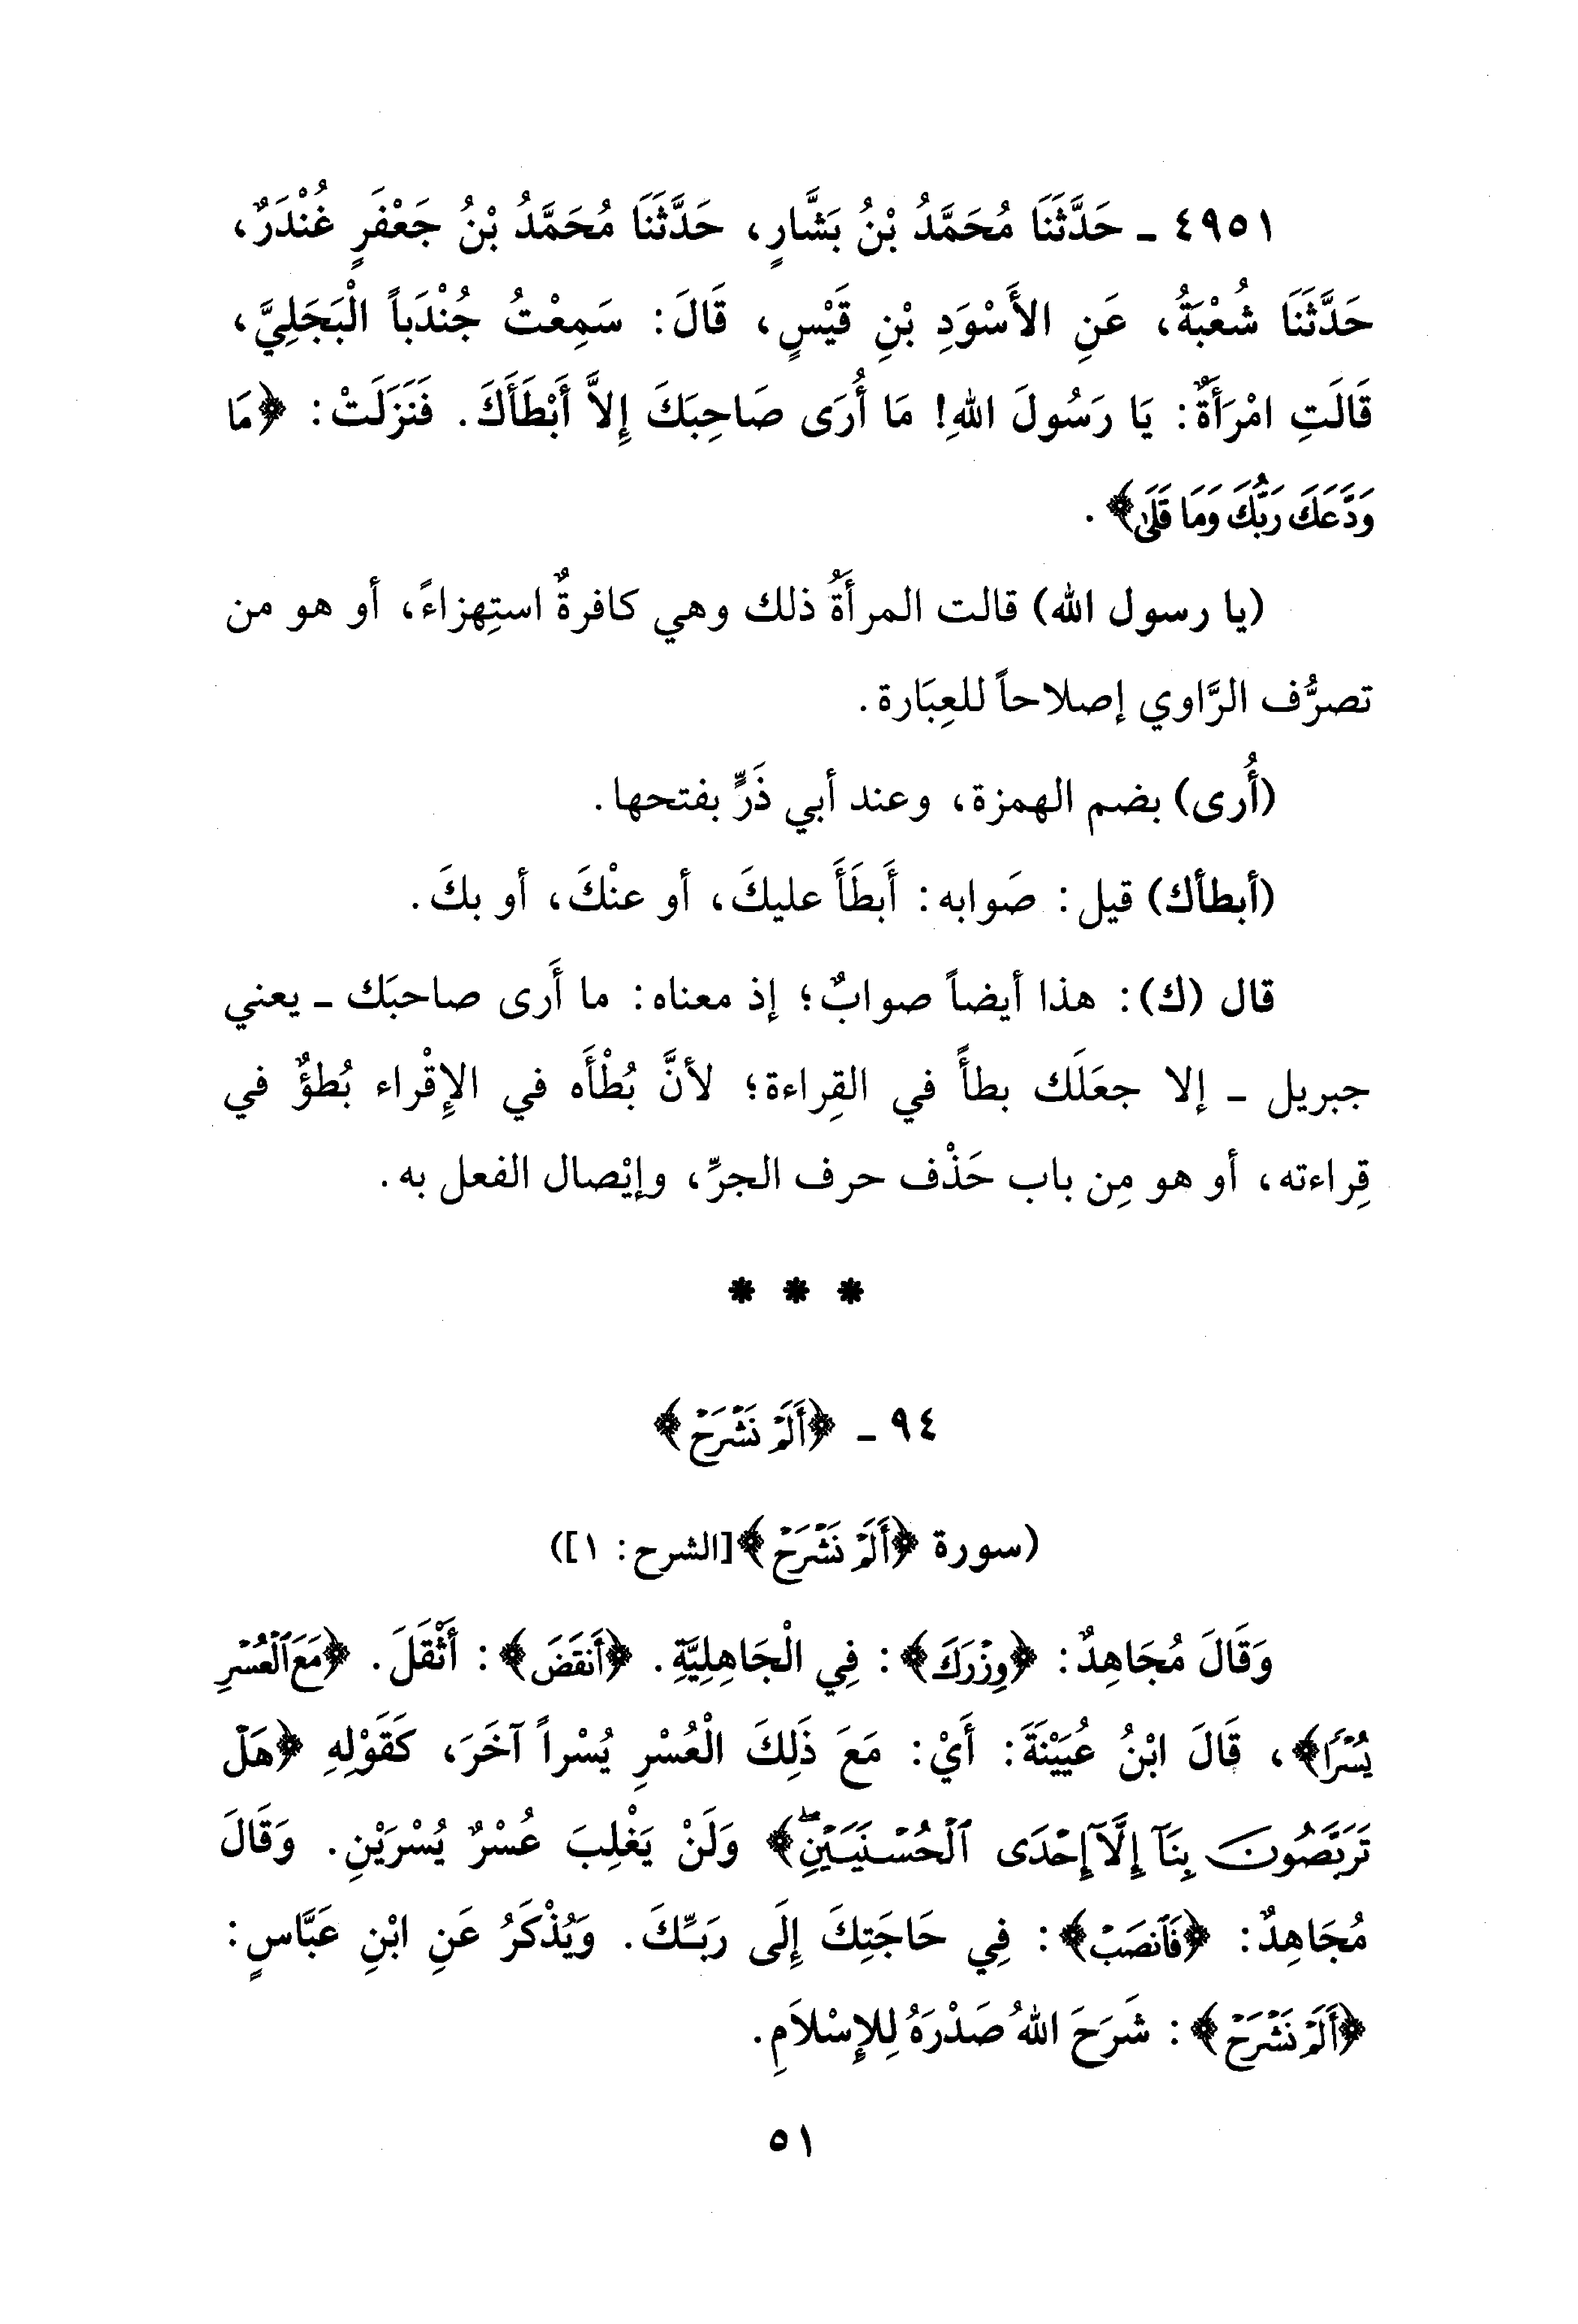 ٤٩٥١ ـ حَدَّثَنَا مُحَمَّدُ بْنُ بَشَّارٍ، حَدَّثَنَا مُحَمَّدُ بْنُ جَعْفَرٍ غُنْدَرٌ،
حَدَّثَنَا شُعْبَةُ، عَنِ الأَسْوَدِ بْنِ قَيْسٍ، قَالَ: سَمِعْتُ جُنْدَباً الْبَجَلِيَّ،
قَالَتِ امْرَأَةٌ: يَا رَسُولَ اللهِ! مَا أُرَى صَاحِبَكَ إِلاَّ أَبْطَأَكَ. فَنَزَلَتْ: ﴿مَا
وَدَّعَكَ رَبُّكَ وَمَا قَلَىٰ﴾.
(يا رسول الله) قالت المرأَةُ ذلك وهي كافرةٌ استِهزاءً، أو هو من
تصرُّف الرَّاوي إصلاحاً للعِبَارة.
(أُرى) بضم الهمزة، وعند أبي ذَرٍّ بفتحها.
(أبطأك) قيل: صَوابه: أَبطَأَ عليكَ، أو عنْكَ، أو بكَ.
قال (ك): هذا أيضاً صوابٌ؛ إذ معناه: ما أَرى صاحبَك ـ يعني
جبريل ـ إلا جعَلَك بطأً في القِراءة؛ لأنَّ بُطْأَه في الإِقْراء بُطؤٌ في
قِراءته، أو هو مِن باب حَذْف حرف الجرِّ، وإيْصال الفعل به.
* * *
٩٤ ـ ﴿أَلَمْ نَشْرَحْ﴾
(سورة ﴿أَلَمْ نَشْرَحْ﴾[الشرح: ١])
وَقَالَ مُجَاهِدٌ: ﴿وِزْرَكَ﴾: فِي الْجَاهِلِيَّةِ. ﴿أَنقَضَ﴾: أَثْقَلَ. ﴿مَعَ ٱلْعُسْرِ
يُسْرًا﴾، قَالَ ابْنُ عُيَيْنَةَ: أَيْ: مَعَ ذَلِكَ الْعُسْرِ يُسْراً آخَرَ، كَقَوْلِهِ ﴿هَلْ
تَرَبَّصُونَ بِنَآ إِلَّآ إِحْدَى ٱلْحُسْنَيَيْنِۖ﴾ وَلَنْ يَغْلِبَ عُسْرٌ يُسْرَيْنِ. وَقَالَ
مُجَاهِدٌ: ﴿فَٱنصَبْ﴾: فِي حَاجَتِكَ إِلَى رَبِّكَ. وَيُذْكَرُ عَنِ ابْنِ عَبَّاسٍ:
﴿أَلَمْ نَشْرَحْ﴾: شَرَحَ اللهُ صَدْرَهُ لِلإِسْلاَمِ.
٥١